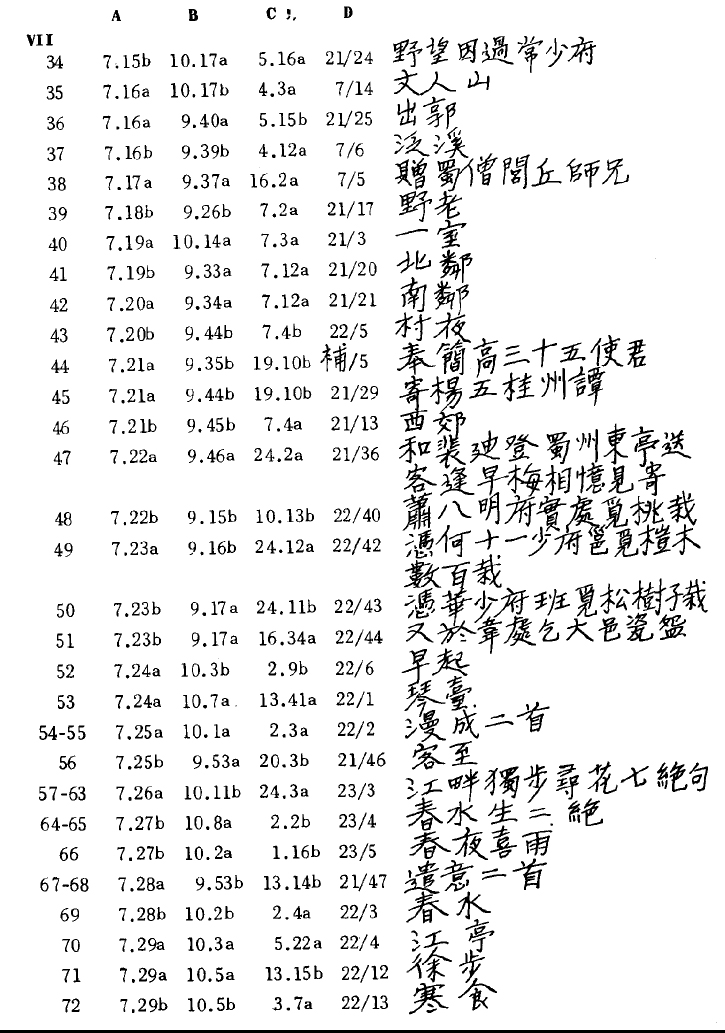 A B C D
VII
34 7.15b 10.17a 5.16a 21/24 野望因過常少府
35 7.16a 10.17b 4.3a 7/14 丈人山
36 7.16a 9.40a 5.15b 21/25 出郭
37 7.16b 9.39b 4.12a 7/6 泛溪
38 7.17a 9.37a 16.2a 7/5 贈蜀僧閭丘師兄
39 7.18b 9.26b 7.2a 21/17 野老
40 7.19a 10.14a 7.3a 21/3 一室
41 7.19b 9.33a 7.12a 21/20 北鄰
42 7.20a 9.34a 7.12a 21/21 南鄰
43 7.20b 9.44b 7.4b 22/5 村夜
44 7.21a 9.35b 19.10b 補/5 奉簡高三十五使君
45 7.21a 9.44b 19.10b 21/29 寄楊五桂州譚
46 7.21b 9.45b 7.4a 21/13 西郊
47 7.22a 9.46a 24.2a 21/36 和裴迪登蜀州東亭送
客逢早梅相憶見寄
48 7.22b 9.15b 10.13b 22/40 蕭八明府實處覓桃栽
49 7.23a 9.16b 24.12a 22/42 憑何十一少府邕覓榿木
數百栽
50 7.23b 9.17a 24.11b 22/43 憑韋少府班覓松樹子栽
51 7.23b 9.17a 16.34a 22/44 又於韋處乞大邑瓷盌
52 7.24a 10.3b 2.9b 22/6 早起
53 7.24a 10.7a 13.41a 22/1 琴臺
54-55 7.25a 10.1a 2.3a 22/2 漫成二首
56 7.25b 9.53a 20.3b 21/46 客至
57-63 7.26a 10.11b 24.3a 23/3 江畔獨步尋花七絕句
64-65 7.27b 10.8a 2.2b 23/4 春水生二絕
66 7.27b 10.2a 1.16b 23/5 春夜喜雨
67-68 7.28a 9.53b 13.14b 21/47 遣意二首
69 7.28b 10.2b 2.4a 22/3 春水
70 7.29a 10.3a 5.22a 22/4 江亭
71 7.29a 10.5a 13.15b 22/12 徐步
72 7.29b 10.5b 3.7a 22/13 寒食